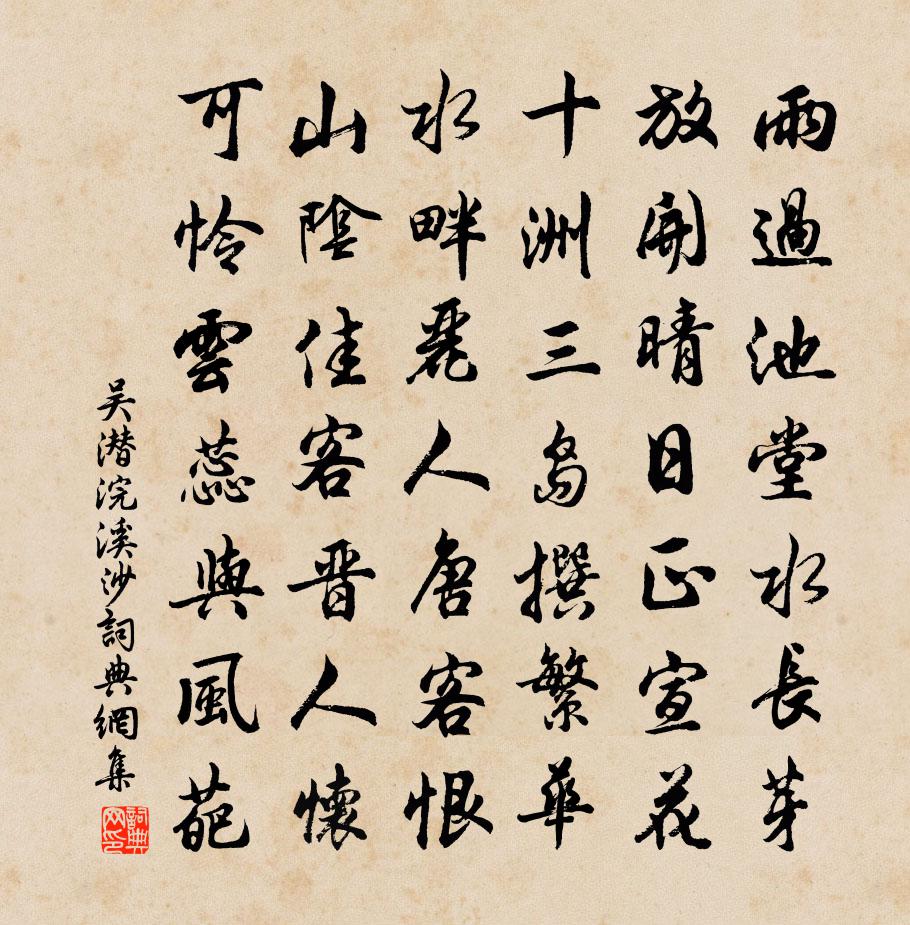 雨過池堂水長芽
放開晴日正宣花
十洲三島撰繁華
水畔麗人唐客恨
山陰佳客晋人懷
可憐雲蕊與風葩
吴潜浣溪沙詞典網集
詞典网印